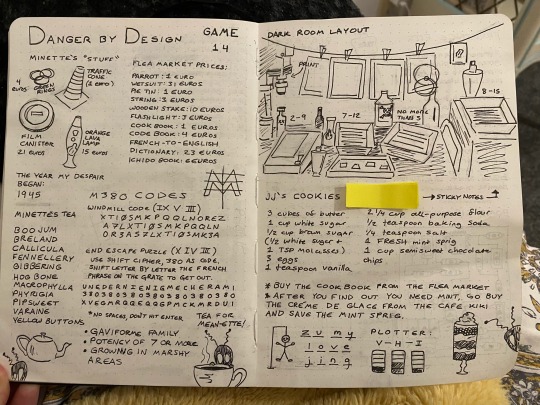 DANGER BY DESIGN
GAME
14
MINETTE'S "STUFF"
4 EUROS
RINGS
TRAFFIC
CONE
FILM
CANISTER
21 EUROS
ORANGE
LAVA
LAMP
15 EUROS
FLEA MARKET PRICES:
PARROT: 1 EURO
WETSUIT: 31 EUROS
PIE TIN: 1 EURO
STRING: 3 EUROS
WOODEN STAKE: 10 EUROS
FLASHLIGHT: 3 EUROS
COOK BOOK: 1 EUROS
CODE BOOK: 4 EUROS
FRENCH-TO-ENGLISH
DICTIONARY: 23 EUROS
ICHIDO BOOK: 6 EUROS
THE YEAR MY DESPAIR
BEGAN:
1945
M380 CODES
WINDMILL CODE (IX V III)
END ESCAPE PUZZLE (X IV III)
USE SHIFT CIPHER, 380 AS CODE,
SHIFT LETTER BY LETTER THE FRENCH
PHRASE ON THE GRATE TO GET OUT.
UNEDERNIENIGMECHERAMI
380380380380380380380
*NO SPACES, DON'T HIT ENTER
MINETTE'S TEA
BOOJUM
BRELAND
CALLICULA
FENNELLERY
GIBBERING
HOG BONE
MACROPHYLLA
PHYRIGIA
PIPSWEET
VARAINE
YELLOW BUTTONS
• GAVIIFORME FAMILY
• POTENCY OF 7 OR MORE
• GROWING IN MARSHY
AREAS
TEA FOR
DARK ROOM LAYOUT
PRINT
2-9
7-12
NO MORE
THAN 5
8-15
JJ'S COOKIES
→ STICKY NOTES
3 cubes of butter
1 cup white sugar
1/2 cup brown sugar
(1/2 white sugar +
1 TSP molasses)
3 eggs
1 teaspoon vanilla
2 1/4 cup all-purpose flour
1/2 teaspoon baking soda
1/4 teaspoon salt
1 FRESH mint sprig
1 cup semisweet chocolate
chips
* BUY THE COOK BOOK FROM THE FLEA MARKET
* AFTER YOU FIND OUT YOU NEED MINT, GO BUY
THE CREME DE GLACE FROM THE CAFE KIKI
AND SAVE THE MINT SPRIG.
zumy
love
jing
PLOTTER:
V-H-I